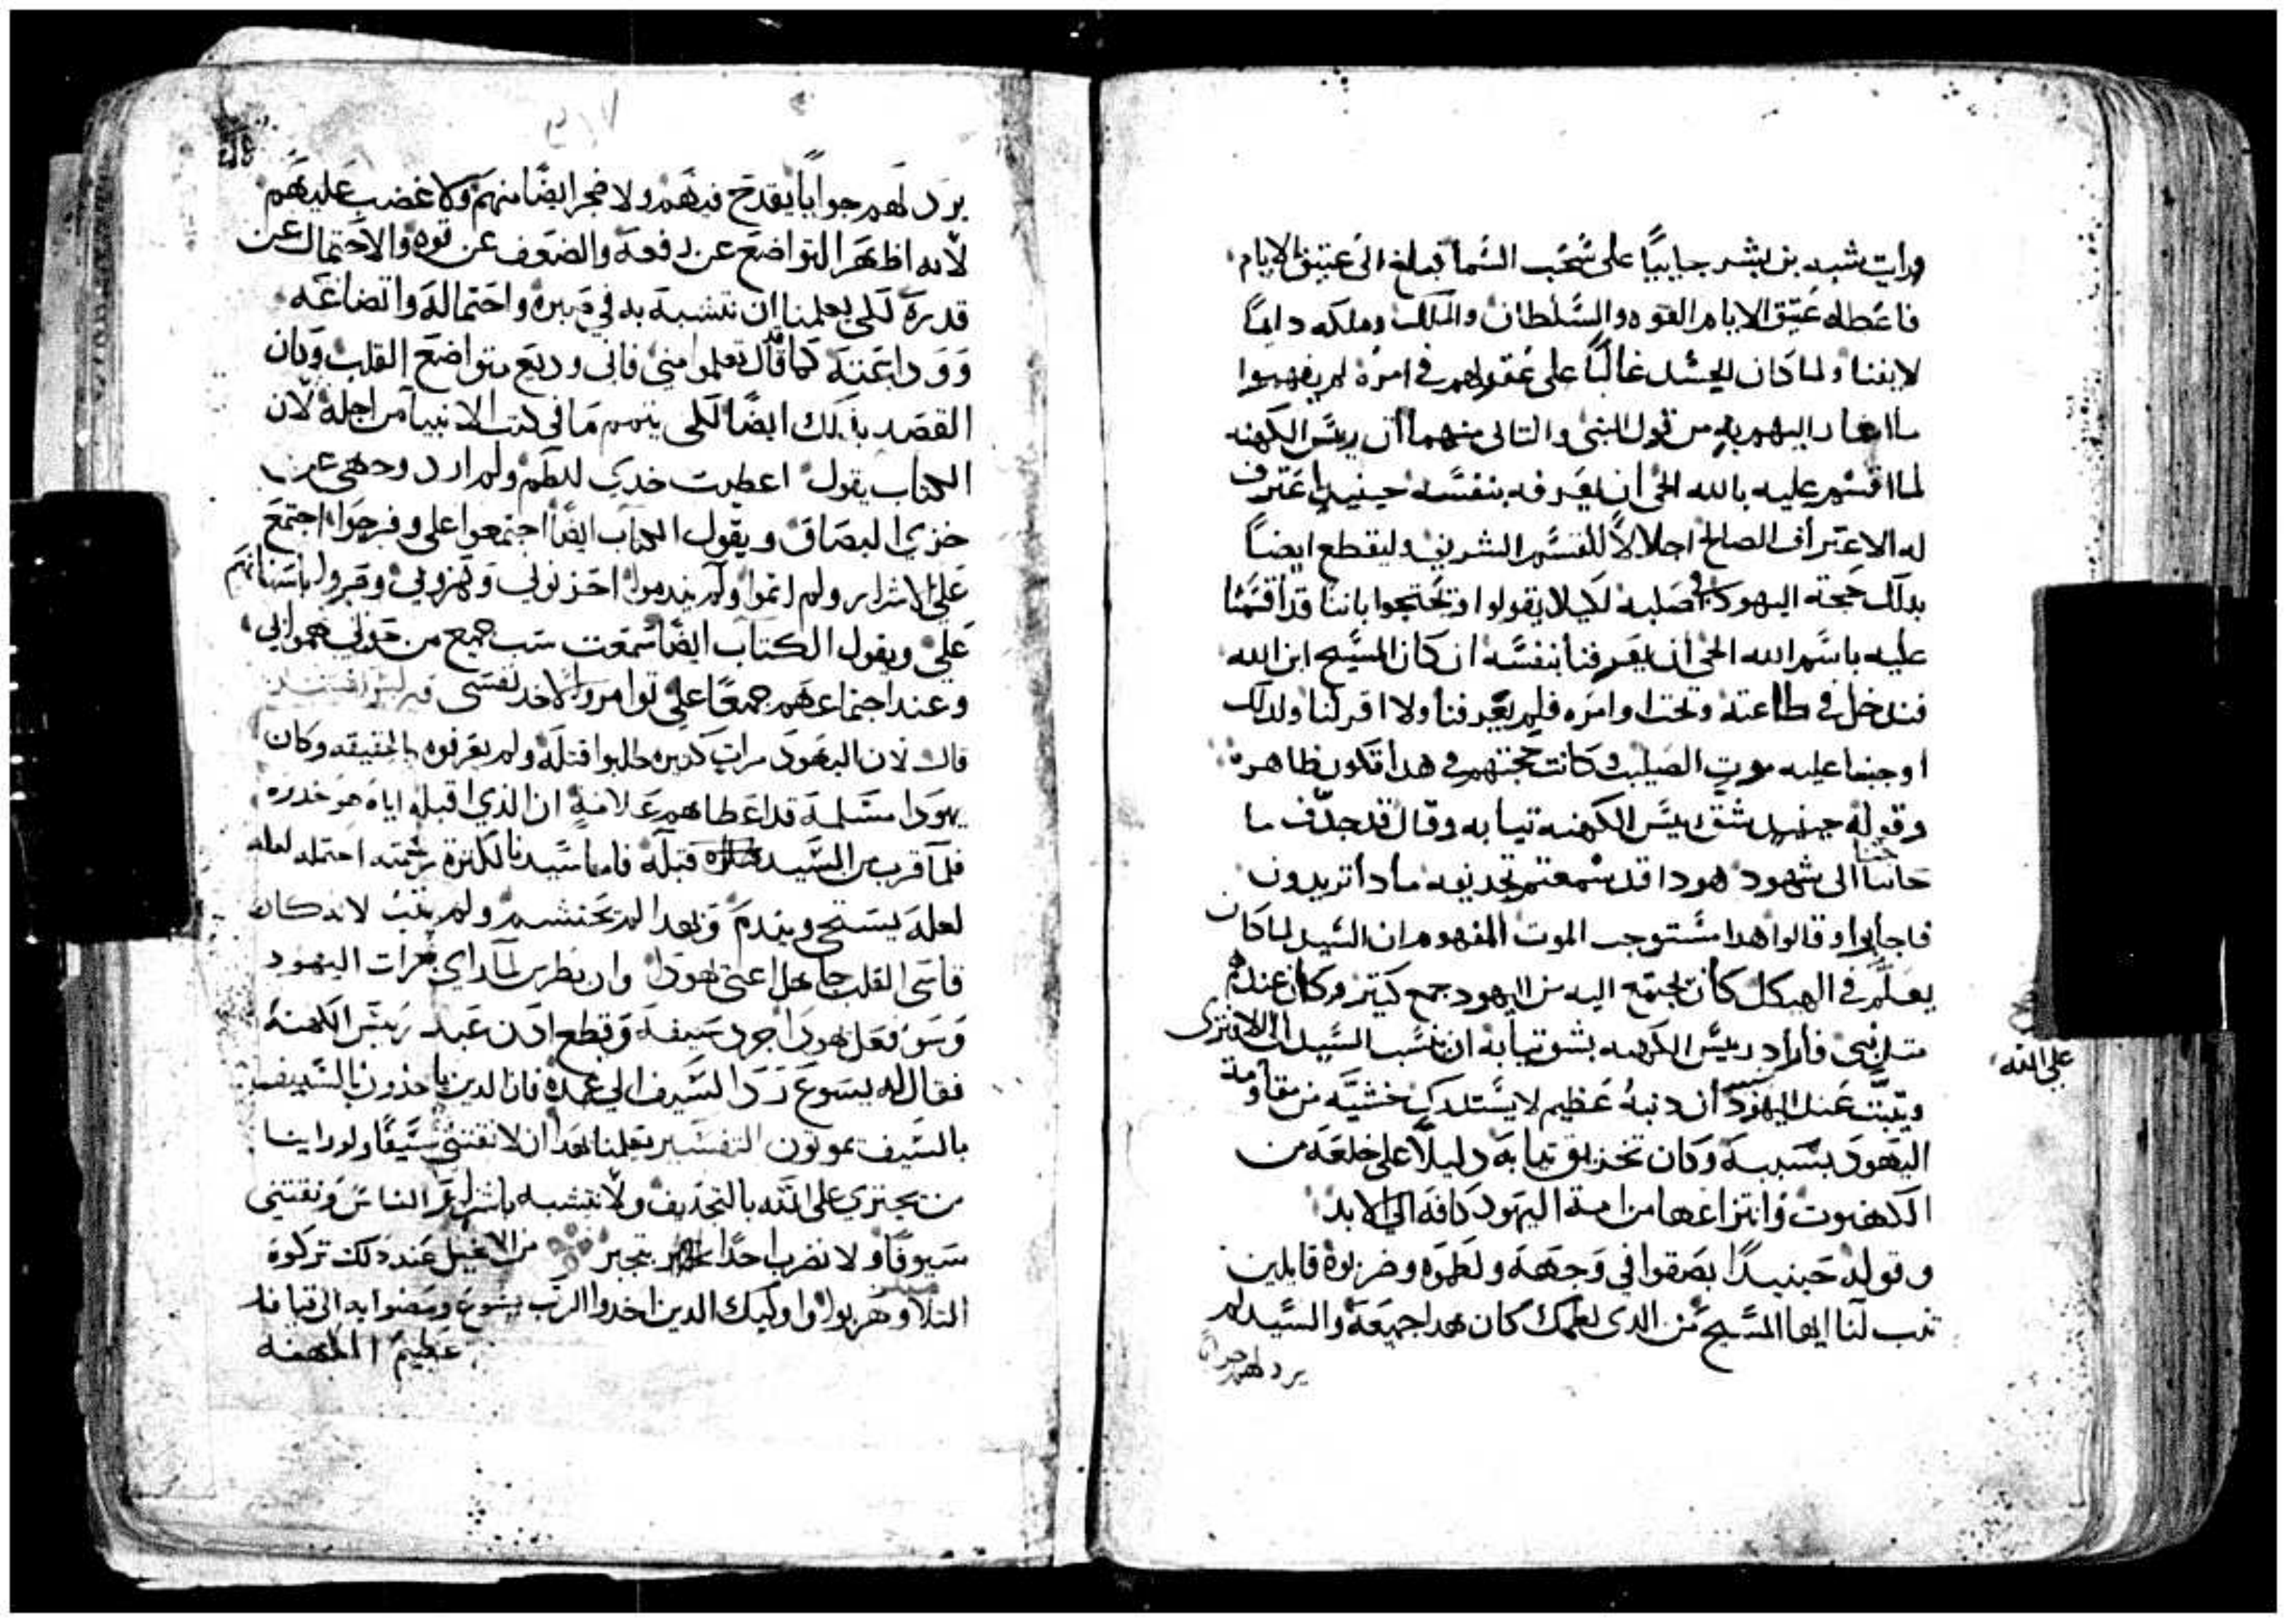 ورايت شبه بن بشر جاييًا على سُحب السُما فبلغ الى عتيق الايام
فاعطاه عُتيق الايام القوه والسُلطان والملك وملكه دايمًا
لا يفنا ولما كان الحسُد غالبًا على عُقولهم في امره لم يفهموا
ما اشار اليهم به من قول النبي والتاني منهما ان ريسُ الكهنه
لما اقسُم عليه بالله الحي ان يعَرفه بنفسُه حينيدٍ اعَترف
له الاعتراف الصالح اجلالًا للقسُم الشريف وليقطع ايضًا
بدلك حجة اليهود في صلبه لكيلا يقولوا او يحتجوا باننا قد اقسمنا
عليه باسُم الله الحي ان يعَرفنا بنفسُه ان كان المسُيح ابن الله
فندخل في طاعته وتحت اوامره فلم يعَرفنا ولا اقر لنا ولدلك
اوجبنا عليه موت الصليب وكانت حجتهم في هدا تكون ظاهره
وقوله حينيدٍ شق ريسُ الكهنه تيابه وقال قد جدّف ما
حاجتنا الى شهود هودا قد سُمعتم تجديفه مادا تريدون
فاجابوا وقالوا هدا مسُتوجب الموت المفهوم ان السُيد لما كان
يعلّم في الهيكل كان يجتمع اليه من اليهود جمع كتير وكان عندهم
متل نبي فاراد ريسُ الكهنه بشق تيابه ان ينسُب السُيد الى الافترى
على الله
ويتبّت عَند اليهود ان دنبهُ عَظيم لا يسُتدرك خشيَّة من مقاومة
اليَهود بسَببه وكان تخزيق تيابه دليلًا على خلعَه من
الكهنوت وانتزاعها من امة اليهود كافه الى الابد
وقوله حَينيدًا بصَقوا في وَجهَه ولطموَه وضربوة قايلين
تنب لنا ايها المسُيح مَن الدى لطمك كان هدا جميعَه والسُيد لم
يرد لهم جوابًا

يرد لهم جوابًا يقدح فيهم ولا ضجر ايضًا منهم ولا غضب عليهم
لانه اظهَر التواضع عن رفعه والضعَف عن قوه والاحتمال عن
قدرة لكى يعلمنا ان نتشبه به في صبره واحتماله واتضاعَه
وَوداعَته كما قال تعلموا مني فاني وديع متواضع القلب وكان
القصَد بدلك ايضًا لكى يتمم ما في كتب الانبيا من اجله لان
الكتاب يقول اعطيت خدي للطم ولم ارد وجهى عن
خزي البصَاق ويقول الكتاب ايضًا اجتمعوا على وفرحوا اجتمع
عَلي الاشرار ولم اعَلم ولم يندموا احزنوني وَهزوني وصروا باسنانهم
عَلي ويقول الكتاب ايضًا سُمعَت سَب جميع من حولي
وعند اجتماعهم جمعًا على توامروا لاخد نفسَى
قال لان اليهود مرات كتيره طلبوا قتله ولم يعَرفوه بالحقيقه وكان
يهودا مسَلمه قد اعَطاهم عَلامة ان الذي اقبله اياه هو خدوه
فلما قرب من السُيد قبله فاما سُيدنا لكترة رحمته احتمله لعله
لعله يسَتحي ويندم وبهدا لم يحتشم ولم يتب لانه كان
قاسَى القلب جاهل اعَنى هودا وان بطرس لما راى جرات اليهود
وسَو فعَل يهودا جرد سَيفه وقطع ادن عَبد ريسَ الكهنة
فقال له يسَوع رد السَيف الي غمده فان الدين ياخذون بالسَيف
بالسَيف يموتون التفسَير يعلمنا بهدا ان لا نقتني سُيفًا ولو راينا
من يجتري على الله بالتجديف ولا نتشبه باشرار الناسَ ونقتني
سَيوفًا ولا نضرب احدًا بتجبر من الانجيل عند دلك تركوه
التلاميد وهربوا واوليك الدين اخدوا الرب يسوع ومضوا به الى قيافا
عَظيم الكهنه